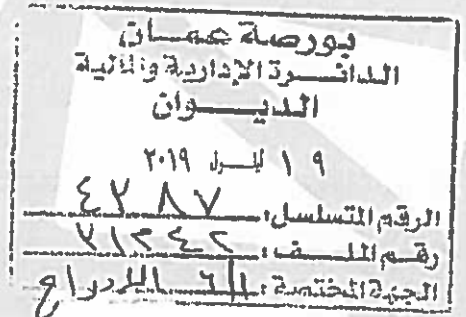 بورصة عمان
الدائرة الإدارية والمالية
الديوان
١٩ أيلول ٢٠١٩
الرقم المتسلسل: ٤٢٨٧
رقم الملف: ٧١٣٤٢
الجهة المختصة: الإدراج